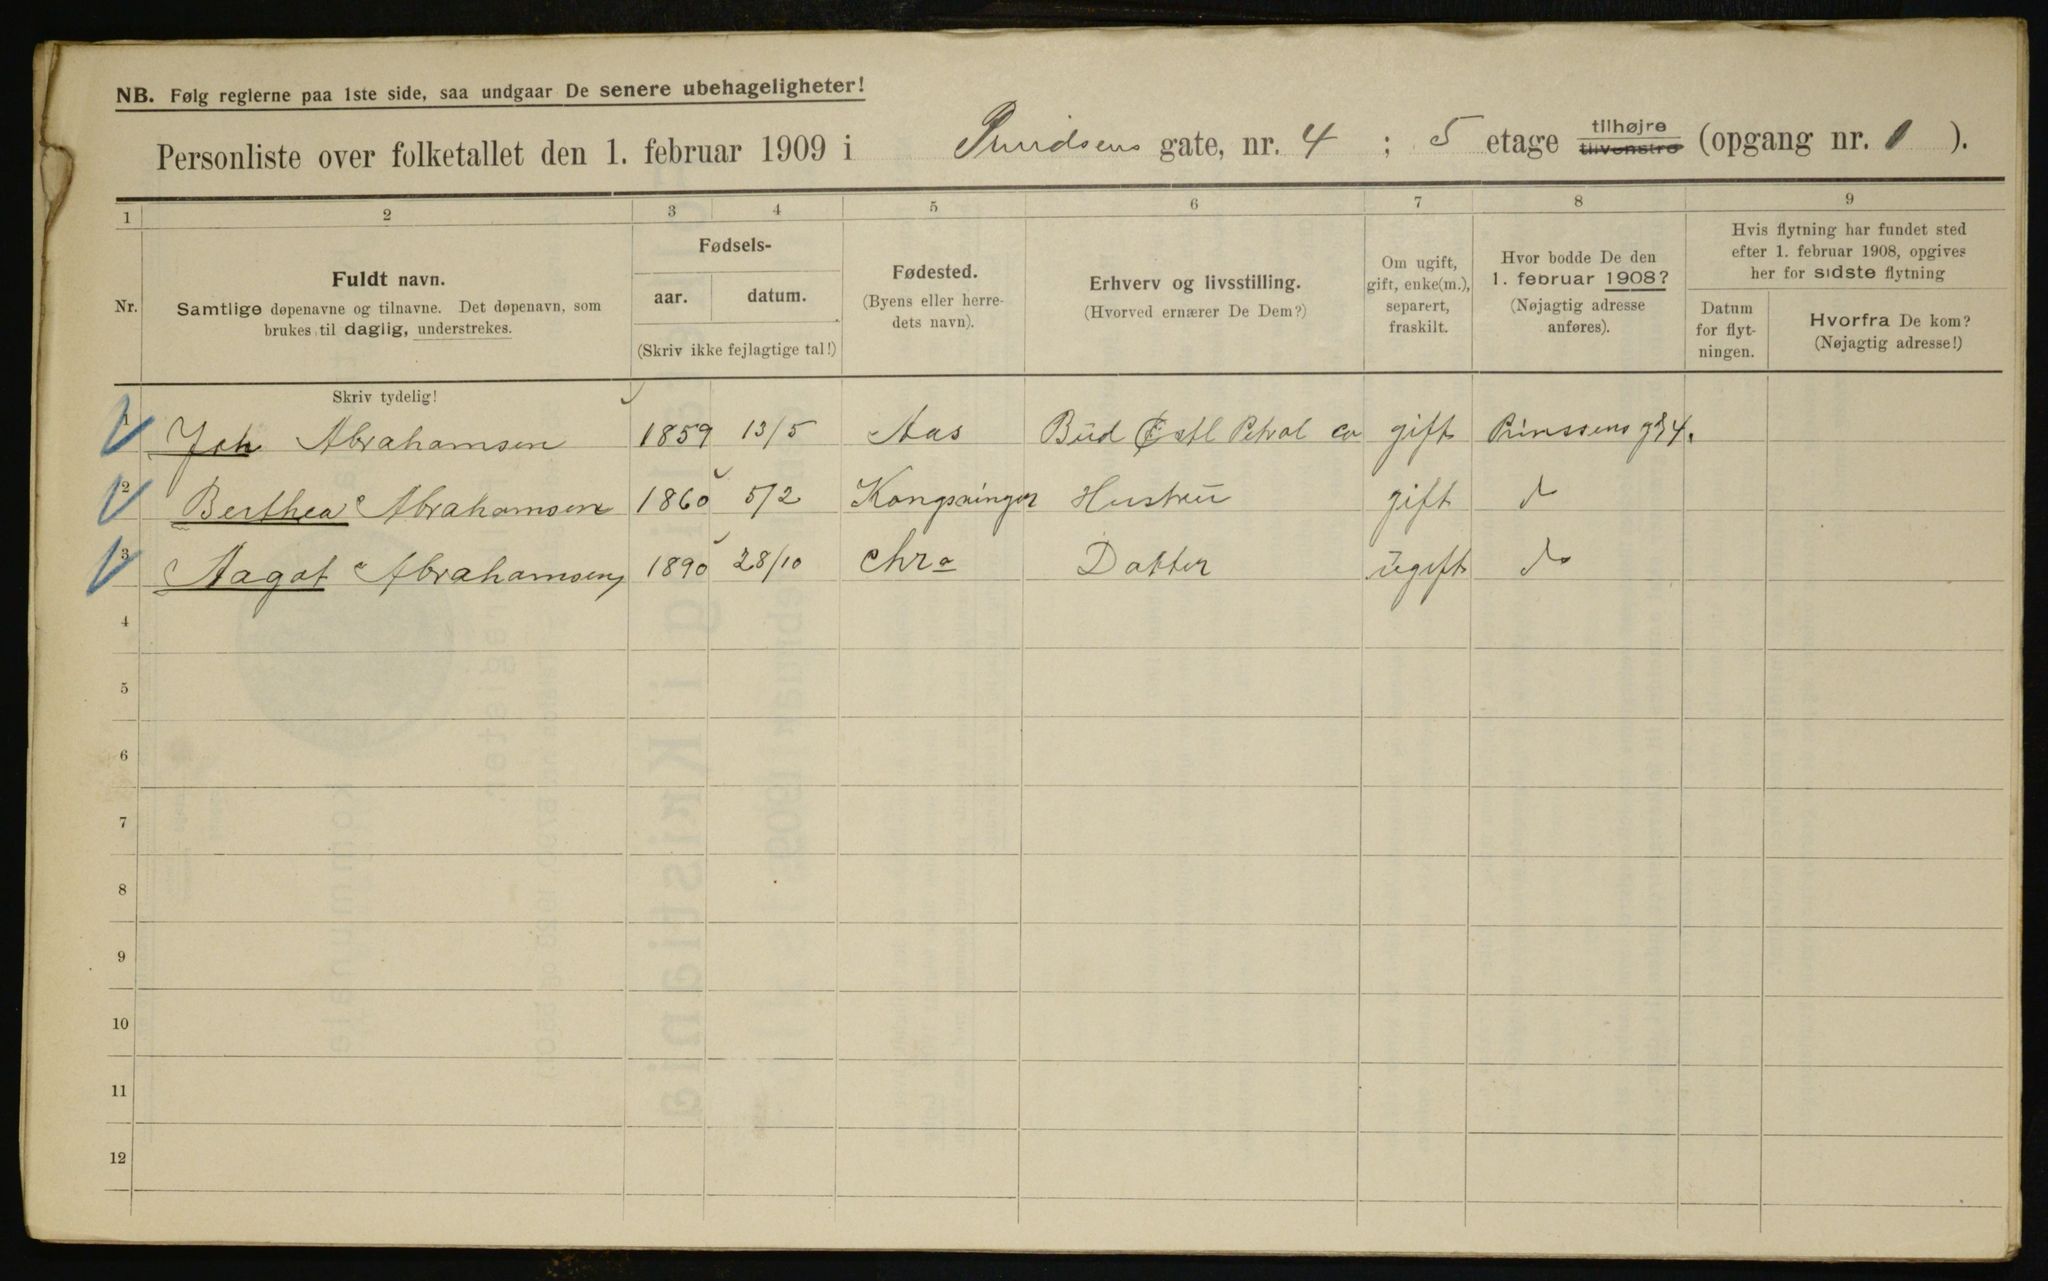 NB. Følg reglerne paa 1ste side, saa undgaar De senere ubehageligheter!
Personliste over folketallet den 1. februar 1909 i gate, nr. 4 ; 5 etage tilhøjre tilvenstre (opgang nr. ).
1 2 3 4 5 6 7 8 9
Nr.
Fuldt navn.
Samtlige døpenavne og tilnavne. Det døpenavn, som
brukes til daglig, understrekes.
Fødsels-
aar. datum.
(Skriv ikke fejlagtige tal!)
Fødested.
(Byens eller herre-
dets navn).
Erhverv og livsstilling.
(Hvorved ernærer De Dem?)
Om ugift,
gift, enke(m.),
separert,
fraskilt.
Hvor bodde De den
1. februar 1908?
(Nøjagtig adresse
anføres).
Hvis flytning har fundet sted
efter 1. februar 1908, opgives
her for sidste flytning
Datum
for flyt-
ningen.
Hvorfra De kom?
(Nøjagtig adresse!)
Skriv tydelig!
1 Joh Abrahamsen 1859 13/5 Aas Bud Østl Petrol Co gift Prinssens gd 4.
2 Berthea Abrahamsen 1860 5/2 Kongsvinger Hustru gift do
3 Aagot Abrahamsen 1890 28/10 Chra Datter ugift do
4
5
6
7
8
9
10
11
12